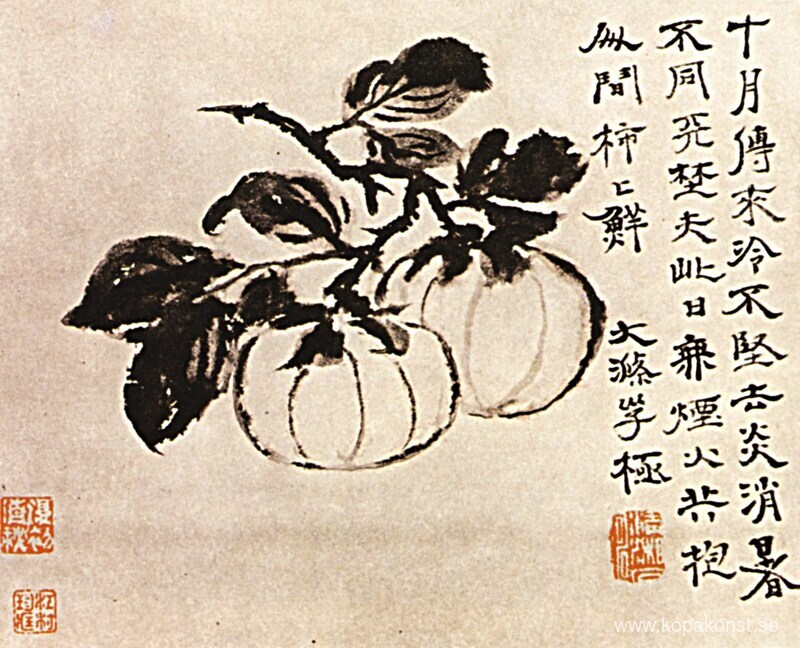 十月傳來冷不堅去炎消暑
不同埜夫此日無煙火共抱
柿上鮮
大滌子極
www.kopakonst.se